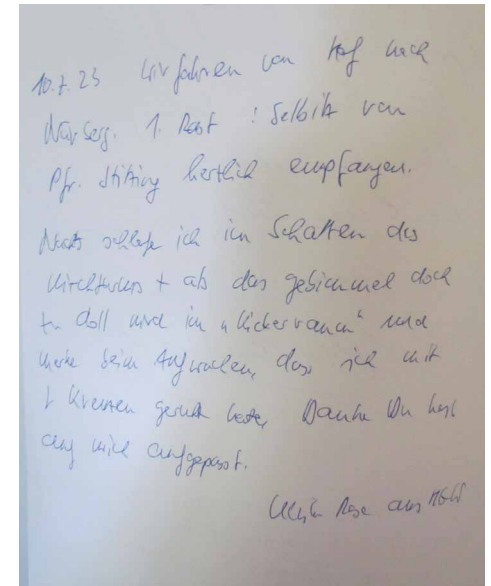 10.7.23 Wir fahren von Hof nach
Nürberg. 1. Rast : Selbitz von
Pfr. herzlich empfangen.
Nachts schlafe ich im Schatten des
Kirchturms + als das gebimmel doch
zu doll wird im " und
merke beim Aufwachen, dass ich mit
Kreuzen hatte, Danke Du hast
auf mich aufgepasst.
Rose aus